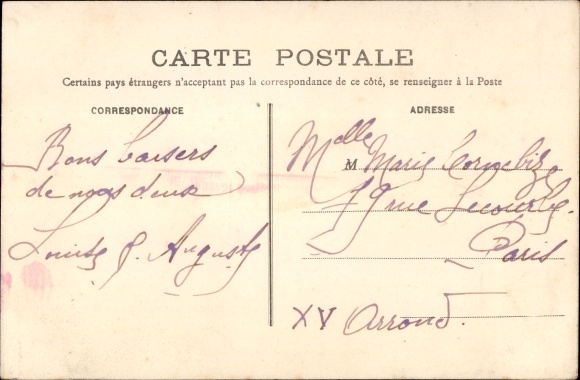 CARTE POSTALE
Certains pays étrangers n'acceptant pas la correspondance de ce côté, se renseigner à la Poste
CORRESPONDANCE
Bons baisers
de nous deux
Louise & Auguste
ADRESSE
Melle
M Marie
rue Lecourbe
Paris
XV Arrond.